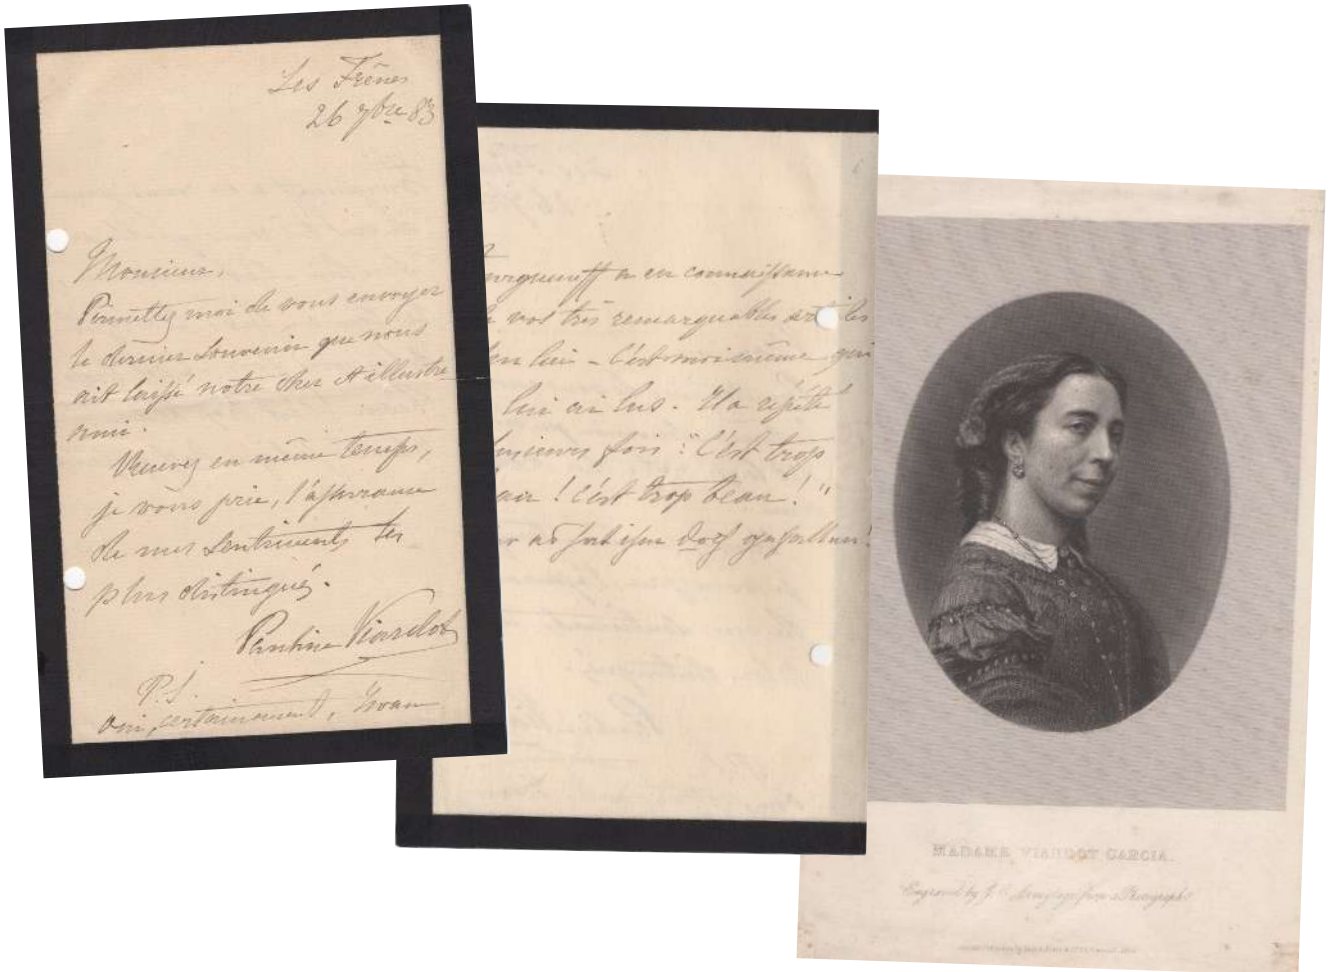 Les Frênes
26 7bre 83
Monsieur,
Permettez moi de vous envoyer
le dernier souvenir que nous
ait laissé notre cher et illustre
ami.
Recevez en même temps,
je vous prie, l'assurance
de mes sentiments les
plus distingués.
Pauline Viardot
P.S.
Oui, certainement, Ivan
urgueneff a eu connaissance
vos très remarquables articles
lui – C'est moi même qui
lui ai lus. Il a répété
usieurs fois : "C'est trop
eau ! c'est trop beau ! "
doch gefallen!
MADAME VIARDOT GARCIA.
Engraved by from a Photograph